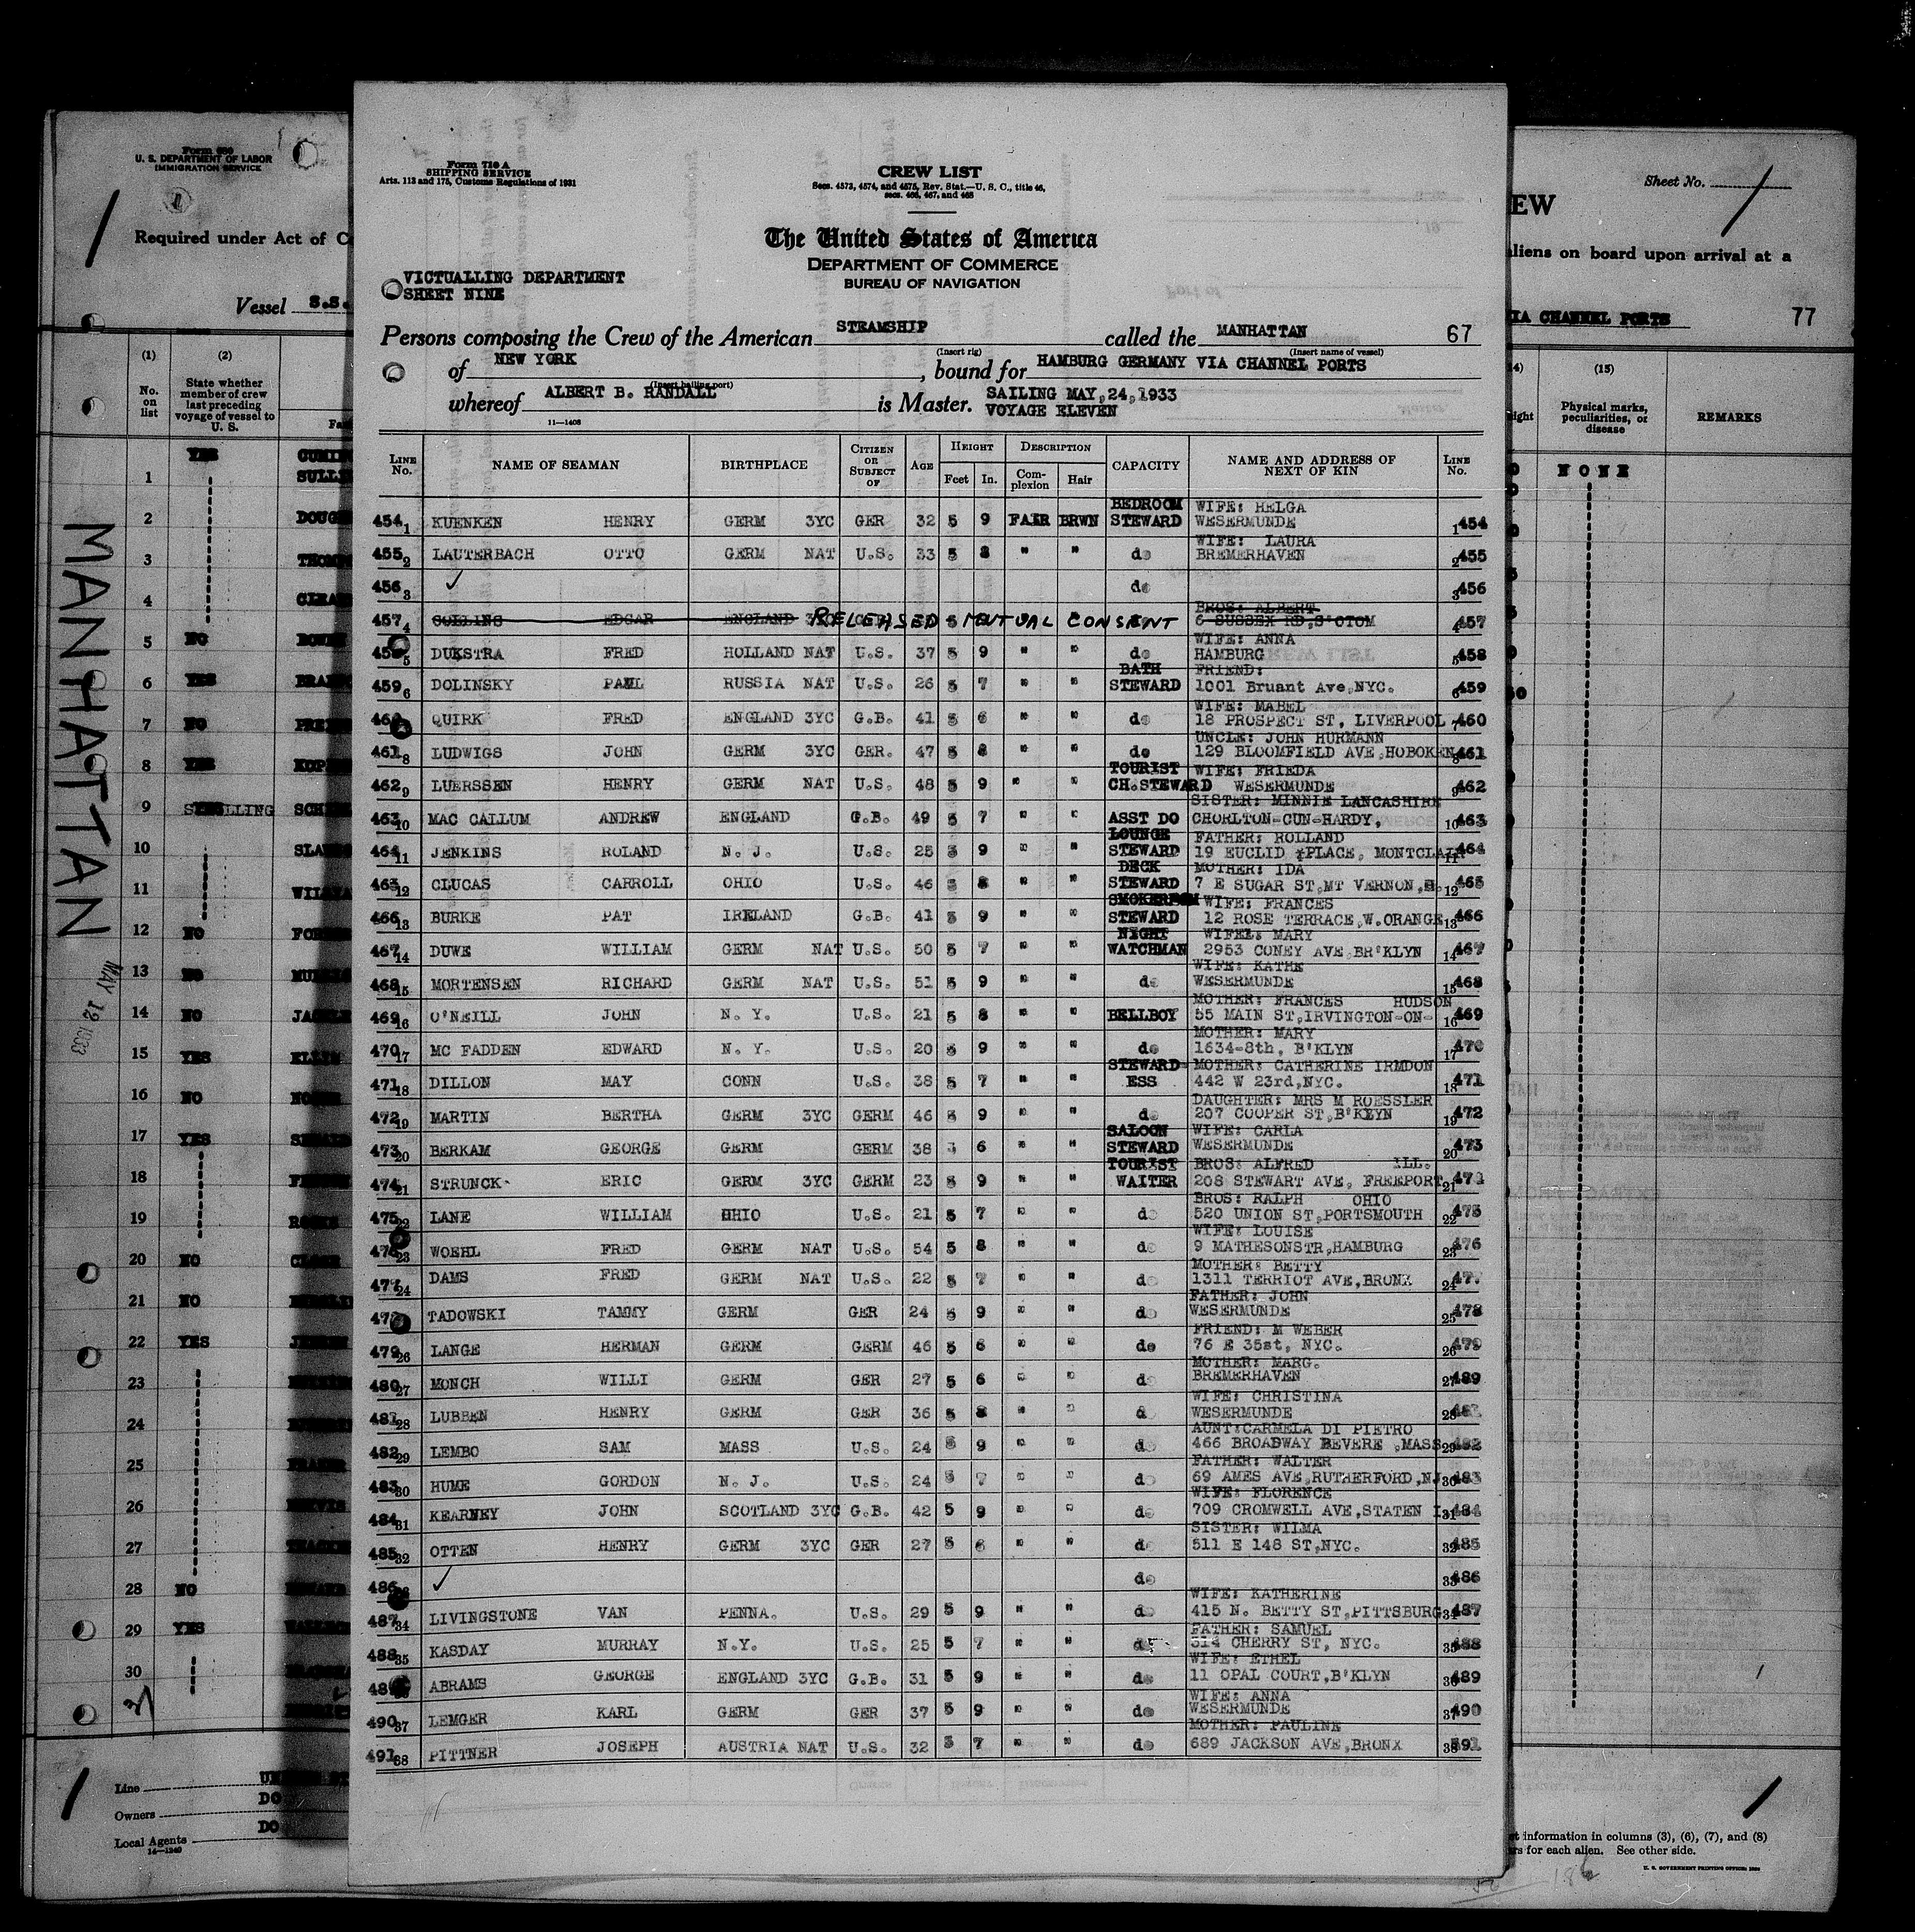 Form 710 A
SHIPPING SERVICE
Arts. 113 and 175, Customs Regulations of 1931
CREW LIST
Secs. 4573, 4574, and 4575, Rev. Stat.—U. S. C., title 46,
secs. 466, 467, and 468
The United States of America
DEPARTMENT OF COMMERCE
BUREAU OF NAVIGATION
VICTUALLING DEPARTMENT
SHEET NINE
Persons composing the Crew of the American STEAMSHIP called the MANHATTAN 67
(Insert rig) (Insert name of vessel)
of NEW YORK , bound for HAMBURG GERMANY VIA CHANNEL PORTS
(Insert hailing port)
whereof ALBERT B. RANDALL is Master. SAILING MAY,24,1933
VOYAGE ELEVEN
11—1408
LINE No. NAME OF SEAMAN BIRTHPLACE CITIZEN OR SUBJECT OF AGE HEIGHT Feet In. DESCRIPTION Complexion Hair CAPACITY NAME AND ADDRESS OF NEXT OF KIN LINE No.
454 1 KUENKEN HENRY GERM 3YC GER 32 5 9 FAIR BRWN BEDROOM STEWARD WIFE: HELGA WESERMUNDE 1 454
455 2 LAUTERBACH OTTO GERM NAT U.S. 33 5 8 " " do WIFE: LAURA BREMERHAVEN 2 455
456 3 ✓ do 3 456
457 4 COLLINS EDGAR ENGLAND RELEASED - MUTUAL CONSENT BROS: ALBERT 6 SUSSEX RD,S'OTOM 4 457
458 5 DUKSTRA FRED HOLLAND NAT U.S. 37 5 9 " " do WIFE: ANNA HAMBURG 5 458
459 6 DOLINSKY PAUL RUSSIA NAT U.S. 26 5 7 " " BATH STEWARD FRIEND: 1001 Bruant Ave,NYC. 6 459
460 QUIRK FRED ENGLAND 3YC G.B. 41 5 6 " " do WIFE: MABEL 18 PROSPECT ST, LIVERPOOL 7 460
461 8 LUDWIGS JOHN GERM 3YC GER. 47 5 8 " " do UNCLE: JOHN HURMANN 129 BLOOMFIELD AVE,HOBOKEN 461
462 9 LUERSSEN HENRY GERM NAT U.S. 48 5 9 " " TOURIST CH.STEWARD WIFE: FRIEDA WESERMUNDE 9 462
463 10 MAC CALLUM ANDREW ENGLAND G.B. 49 5 7 " " ASST DO SISTER: MINNIE LANCASHIRE CHORLTON-CUN-HARDY, 10 463
464 11 JENKINS ROLAND N. J. U.S. 25 5 9 " " LOUNGE STEWARD FATHER: ROLLAND 19 EUCLID PLACE, MONTCLAIR 11 464
465 12 CLUCAS CARROLL OHIO U.S. 46 5 8 " " DECK STEWARD MOTHER: IDA 7 E SUGAR ST,MT VERNON, 12 465
466 13 BURKE PAT IRELAND G.B. 41 5 9 " " SMOKEROOM STEWARD WIFE: FRANCES 12 ROSE TERRACE,W.ORANGE 13 466
467 14 DUWE WILLIAM GERM NAT U.S. 50 5 7 " " NIGHT WATCHMAN WIFEL: MARY 2953 CONEY AVE,BR'KLYN 14 467
468 15 MORTENSEN RICHARD GERM NAT U.S. 51 5 9 " " do WIFE: KATHE WESERMUNDE 15 468
469 16 O'NEILL JOHN N. Y. U.S. 21 5 8 " " BELLBOY MOTHER: FRANCES HUDSON 55 MAIN ST,IRVINGTON-ON- 16 469
470 17 MC FADDEN EDWARD N. Y. U.S. 20 5 9 " " do MOTHER: MARY 1634-8th, B'KLYN 17 470
471 18 DILLON MAY CONN U.S. 38 5 7 " " STEWARD- ESS MOTHER: CATHERINE IRMDON 442 W 23rd,NYC. 18 471
472 19 MARTIN BERTHA GERM 3YC GERM 46 5 9 " " do DAUGHTER: MRS M ROESSLER 207 COOPER ST,B'KLYN 19 472
473 20 BERKAM GEORGE GERM GERM 38 6 " " SALOON STEWARD WIFE: CARLA WESERMUNDE 20 473
474 21 STRUNCK ERIC GERM 3YC GERM 23 5 9 " " TOURIST WAITER BROS: ALFRED ILL. 208 STEWART AVE, FREEPORT 21 474
475 22 LANE WILLIAM OHIO U.S. 21 5 7 " " do BROS: RALPH OHIO 520 UNION ST,PORTSMOUTH 22 475
476 23 WOEHL FRED GERM NAT U.S. 54 5 8 " " do WIFE: LOUISE 9 MATHESONSTR,HAMBURG 23 476
477 24 DAMS FRED GERM NAT U.S. 22 5 7 " " do MOTHER: BETTY 1311 TERRIOT AVE,BRONX 24 477
478 TADOWSKI TAMMY GERM GER 24 5 9 " " do FATHER: JOHN WESERMUNDE 25 478
479 26 LANGE HERMAN GERM GERM 46 5 6 " " do FRIEND: M WEBER 76 E 35st, NYC. 26 479
480 27 MONCH WILLI GERM GER 27 5 6 " " do MOTHER: MARG. BREMERHAVEN 27 489
481 28 LUBBEN HENRY GERM GER 36 5 8 " " d WIFE: CHRISTINA WESERMUNDE 28 481
482 29 LEMBO SAM MASS U.S. 24 5 9 " " do AUNT:CARMELA DI PIETRO 466 BROADWAY BEVERE ,MASS 29 482
483 30 HUME GORDON N. J. U.S. 24 5 7 " " do FATHER: WALTER 69 AMES AVE,RUTHERFORD,NJ 30 483
484 31 KEARNEY JOHN SCOTLAND 3YC G.B. 42 5 9 " " do WIFE: FLORENCE 709 CROMWELL AVE,STATEN I 31 484
485 32 OTTEN HENRY GERM 3YC GER 27 5 6 " " do SISTER: WILMA 511 E 148 ST,NYC. 32 485
486 ✓ do 33 486
487 34 LIVINGSTONE VAN PENNA. U.S. 29 5 9 " " do WIFE: KATHERINE 415 N. BETTY ST,PITTSBURG 34 487
488 35 KASDAY MURRAY N.Y. U.S. 25 5 7 " " do FATHER: SAMUEL 314 CHERRY ST, NYC. 35 488
ABRAMS GEORGE ENGLAND 3YC G.B. 31 5 9 " " do WIFE: ETHEL 11 OPAL COURT,B'KLYN 36 489
490 37 LEMGER KARL GERM GER 37 5 9 " " do WIFE: ANNA WESERMUNDE 37 490
491 38 PITTNER JOSEPH AUSTRIA NAT U.S. 32 5 7 " " do MOTHER: PAULINE 689 JACKSON AVE,BRONX 38 591
Form 680
U. S. DEPARTMENT OF LABOR
IMMIGRATION SERVICE
Required under Act of C
Vessel S.S.
(1) (2)
No. on list
State whether member of crew last preceding voyage of vessel to U. S.
YES
1 SULL
2 DOUG
3 THOMP
4
5 NO
6 YES
7 NO
8 YES
9
10
11
12 NO
13 NO
14 NO
15 YES
16 NO
17 YES
18
19
20 NO
21 NO
22 YES
23
24
25
26
27
28 NO
29 YES
30
31
MANHATTAN
MAY 12 1933
Line
Owners DO
Local Agents DO
14—1240
Sheet No. 1
EW
aliens on board upon arrival at a
IA CHANNEL PORTS 77
(15)
Physical marks, peculiarities, or disease
REMARKS
NONE
t information in columns (3), (6), (7), and (8)
rs for each alien. See other side.
U. S. GOVERNMENT PRINTING OFFICE